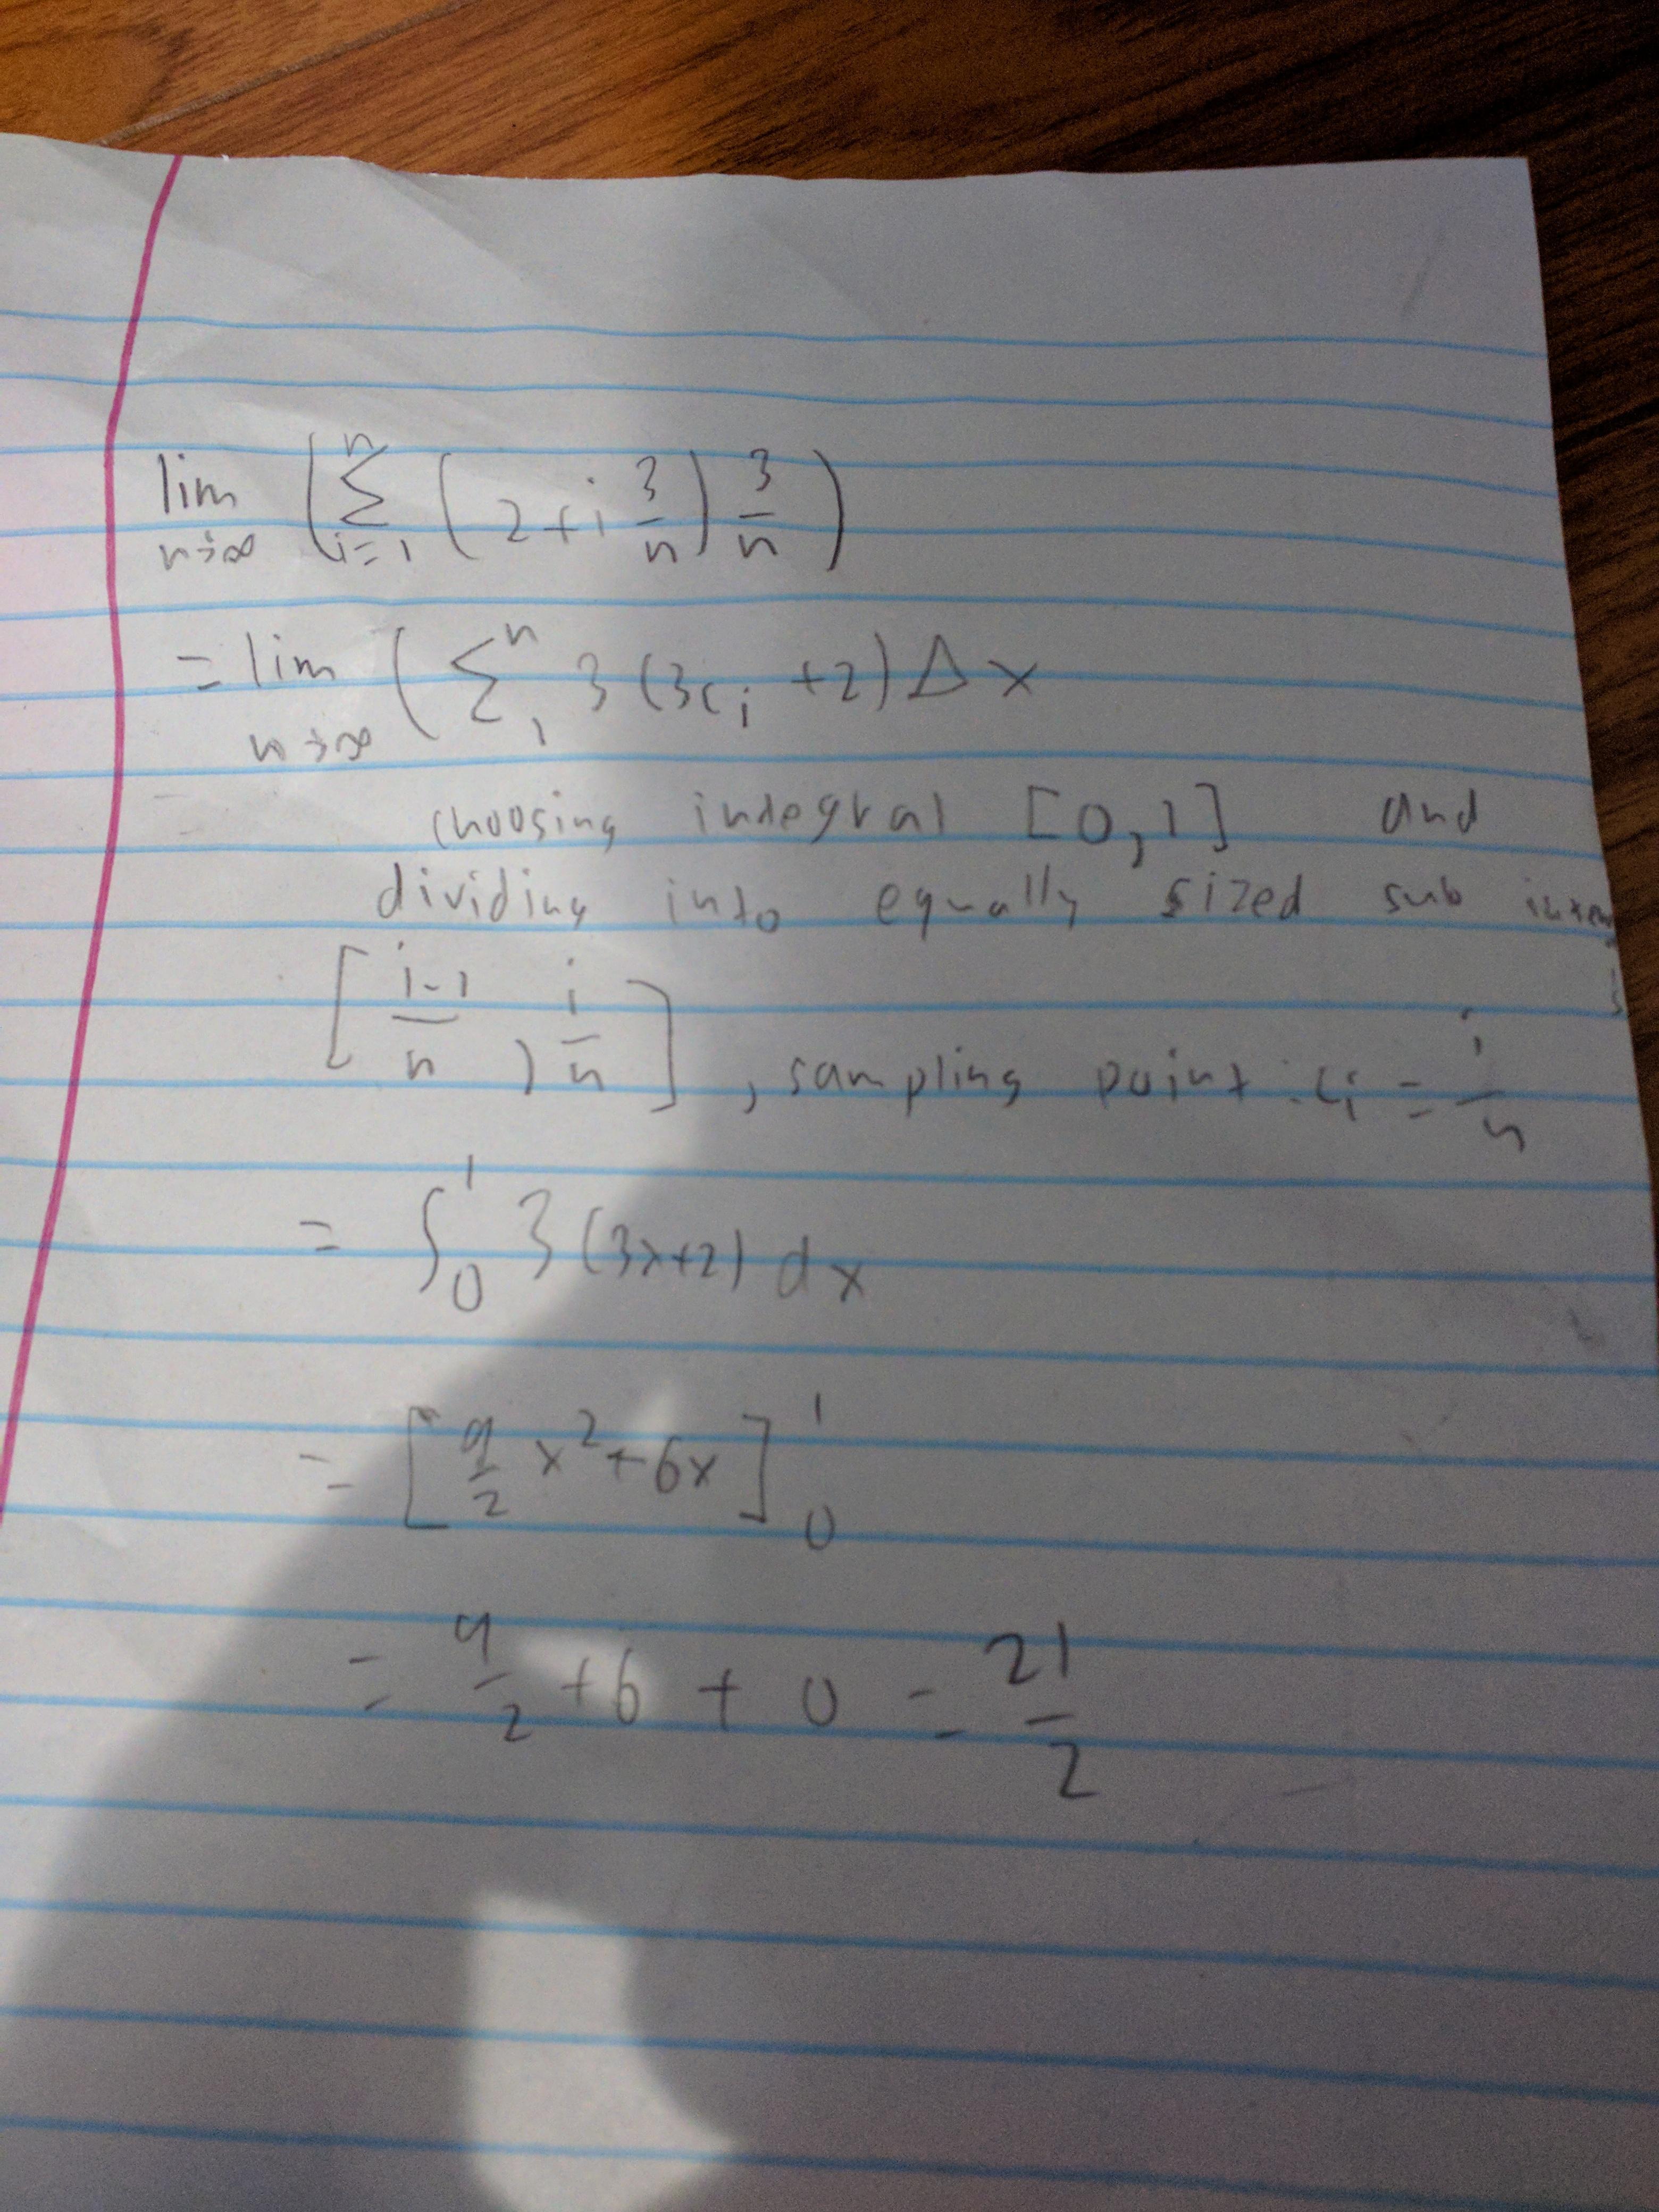 lim n→∞ (∑ i=1 n (2+i 3/n) 3/n)
= lim n→∞ (∑ 1 n 3(3c_i +2)Δx
choosing integral [0,1] and
dividing into equally sized sub
[i-1/n , i/n], sampling point: c_i = i/n
= ∫_0^1 3(3x+2) dx
= [9/2 x^2+6x]_0^1
= 9/2 +6 + 0 = 21/2